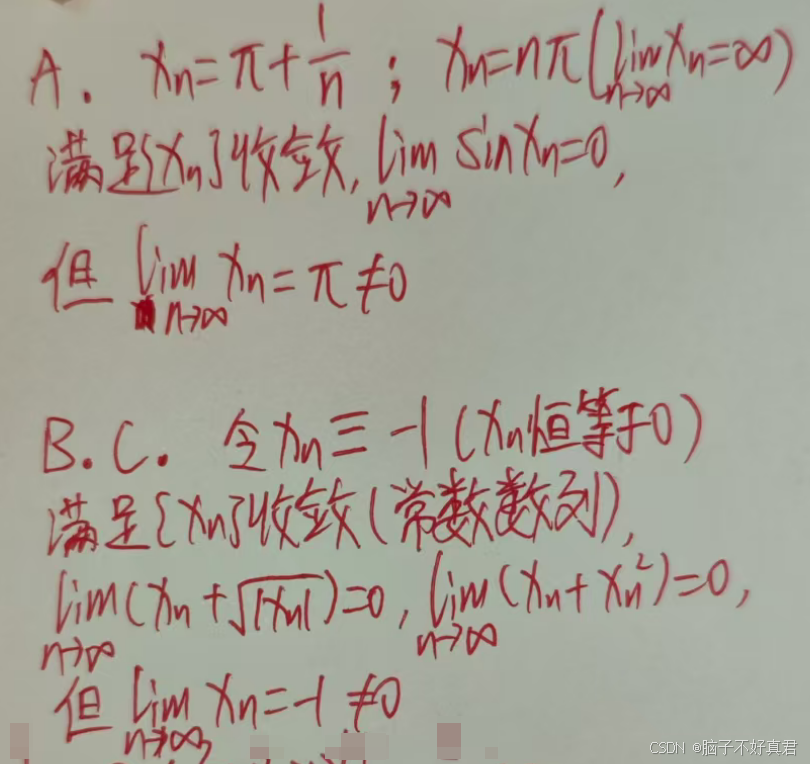 A. xₙ=π+1/n ; xₙ=nπ(lim n→∞ xₙ=∞)
满足{xₙ}收敛, lim n→∞ sinxₙ=0,
但 lim n→∞ xₙ=π≠0
B.C. 令xₙ≡-1(xₙ恒等于0)
满足{xₙ}收敛(常数数列),
lim n→∞ (xₙ+√|xₙ|)=0, lim n→∞ (xₙ+xₙ²)=0,
但 lim n→∞ xₙ=-1≠0
CSDN @脑子不好真君